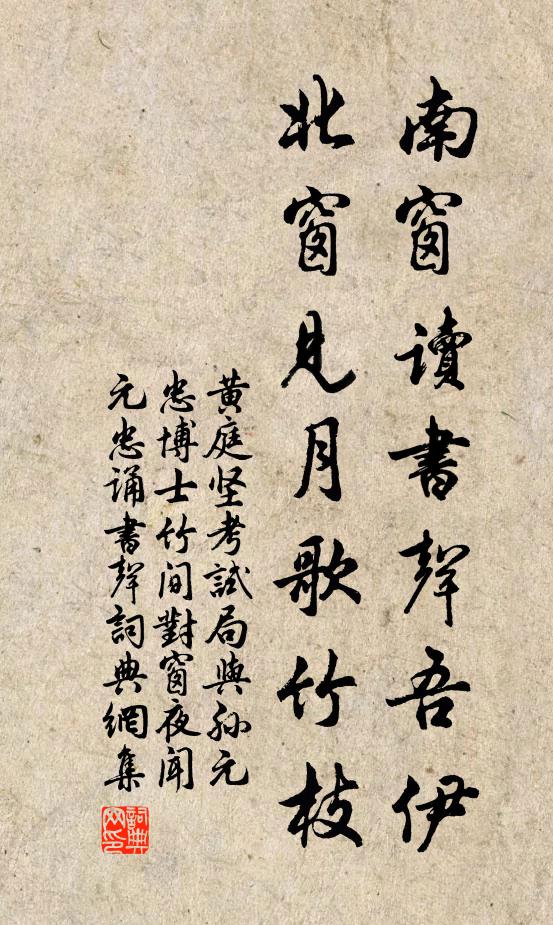 南窗讀書聲吾伊
北窗見月歌竹枝
黄庭坚考試局與孙元
忠博士竹间對窗夜闻
元忠誦書聲詞典網集
詞典
网印